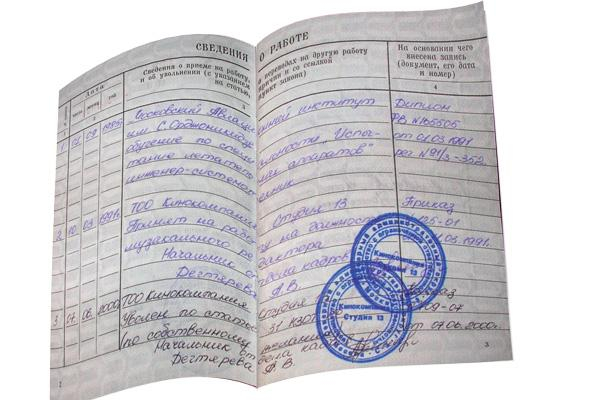 СВЕДЕНИЯ О РАБОТЕ
Дата
число
месяц
год
Сведения о приеме на работу, о переводах на другую работу
и об увольнении (с указанием причин и со ссылкой
на статью, пункт закона)
На основании чего
внесена запись
(документ, его дата
и номер)
3
4
1. 01 09 1985г. Московский Авиационный институт Диплом
им. С. Орджоникидзе ФВ №165506
обучение по специальности "Испытание от 01.03.1991
летательных аппаратов" рег №91/3-352
инженер-системотехник
2. 10. 03. 1991г. ТОО Кинокомпания Студия 13 Приказ
Принят на работу на должность 125-01
музыкального редактора 01.03.1991.
Начальник отдела кадров
Дегтярева А.В.
3. 07. 06. 2000г. ТОО Кинокомпания Студия
Уволен по статье 31 КЗОТ 09-07
(по собственному желанию) от 07.06.2000г.
Начальник отдела кадров
Дегтярева А. В.
Кинокомпания
Студия 13
Кинокомпания
Студия 13
2
3